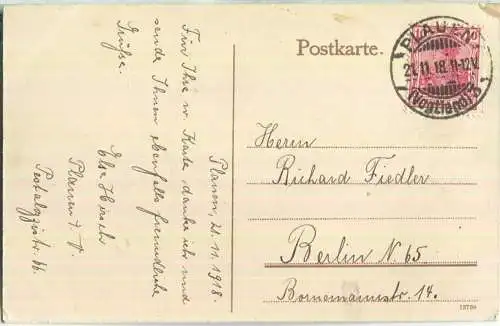 Postkarte.
PLAUEN
21.11.18.11-12V.
(Vogtland) 3
Plauen, 21.11.1918
Für Ihre w. Karte danke ich und
sende Ihnen ebenfalls freundliche
Grüße.
Else Hirsch
Plauen i. V.
Pestalozzistr. 66.
Herrn
Richard Fiedler
Berlin N. 65
Bornemannstr. 14.